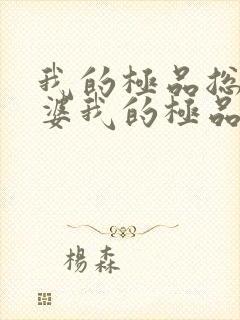 我的極品総
婆我的極品
楊森